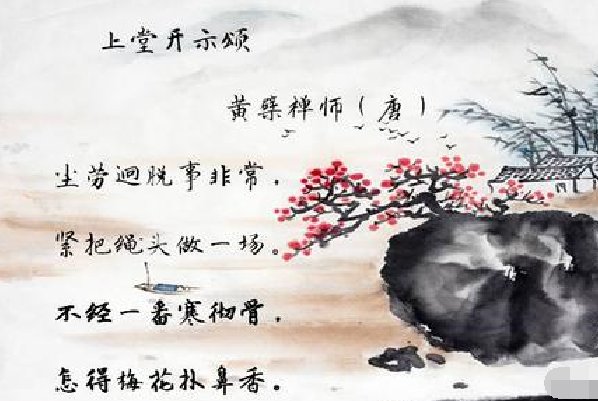 上堂开示颂
黄檗禅师(唐)
尘劳迥脱事非常,
紧把绳头做一场。
不经一番寒彻骨,
怎得梅花扑鼻香。